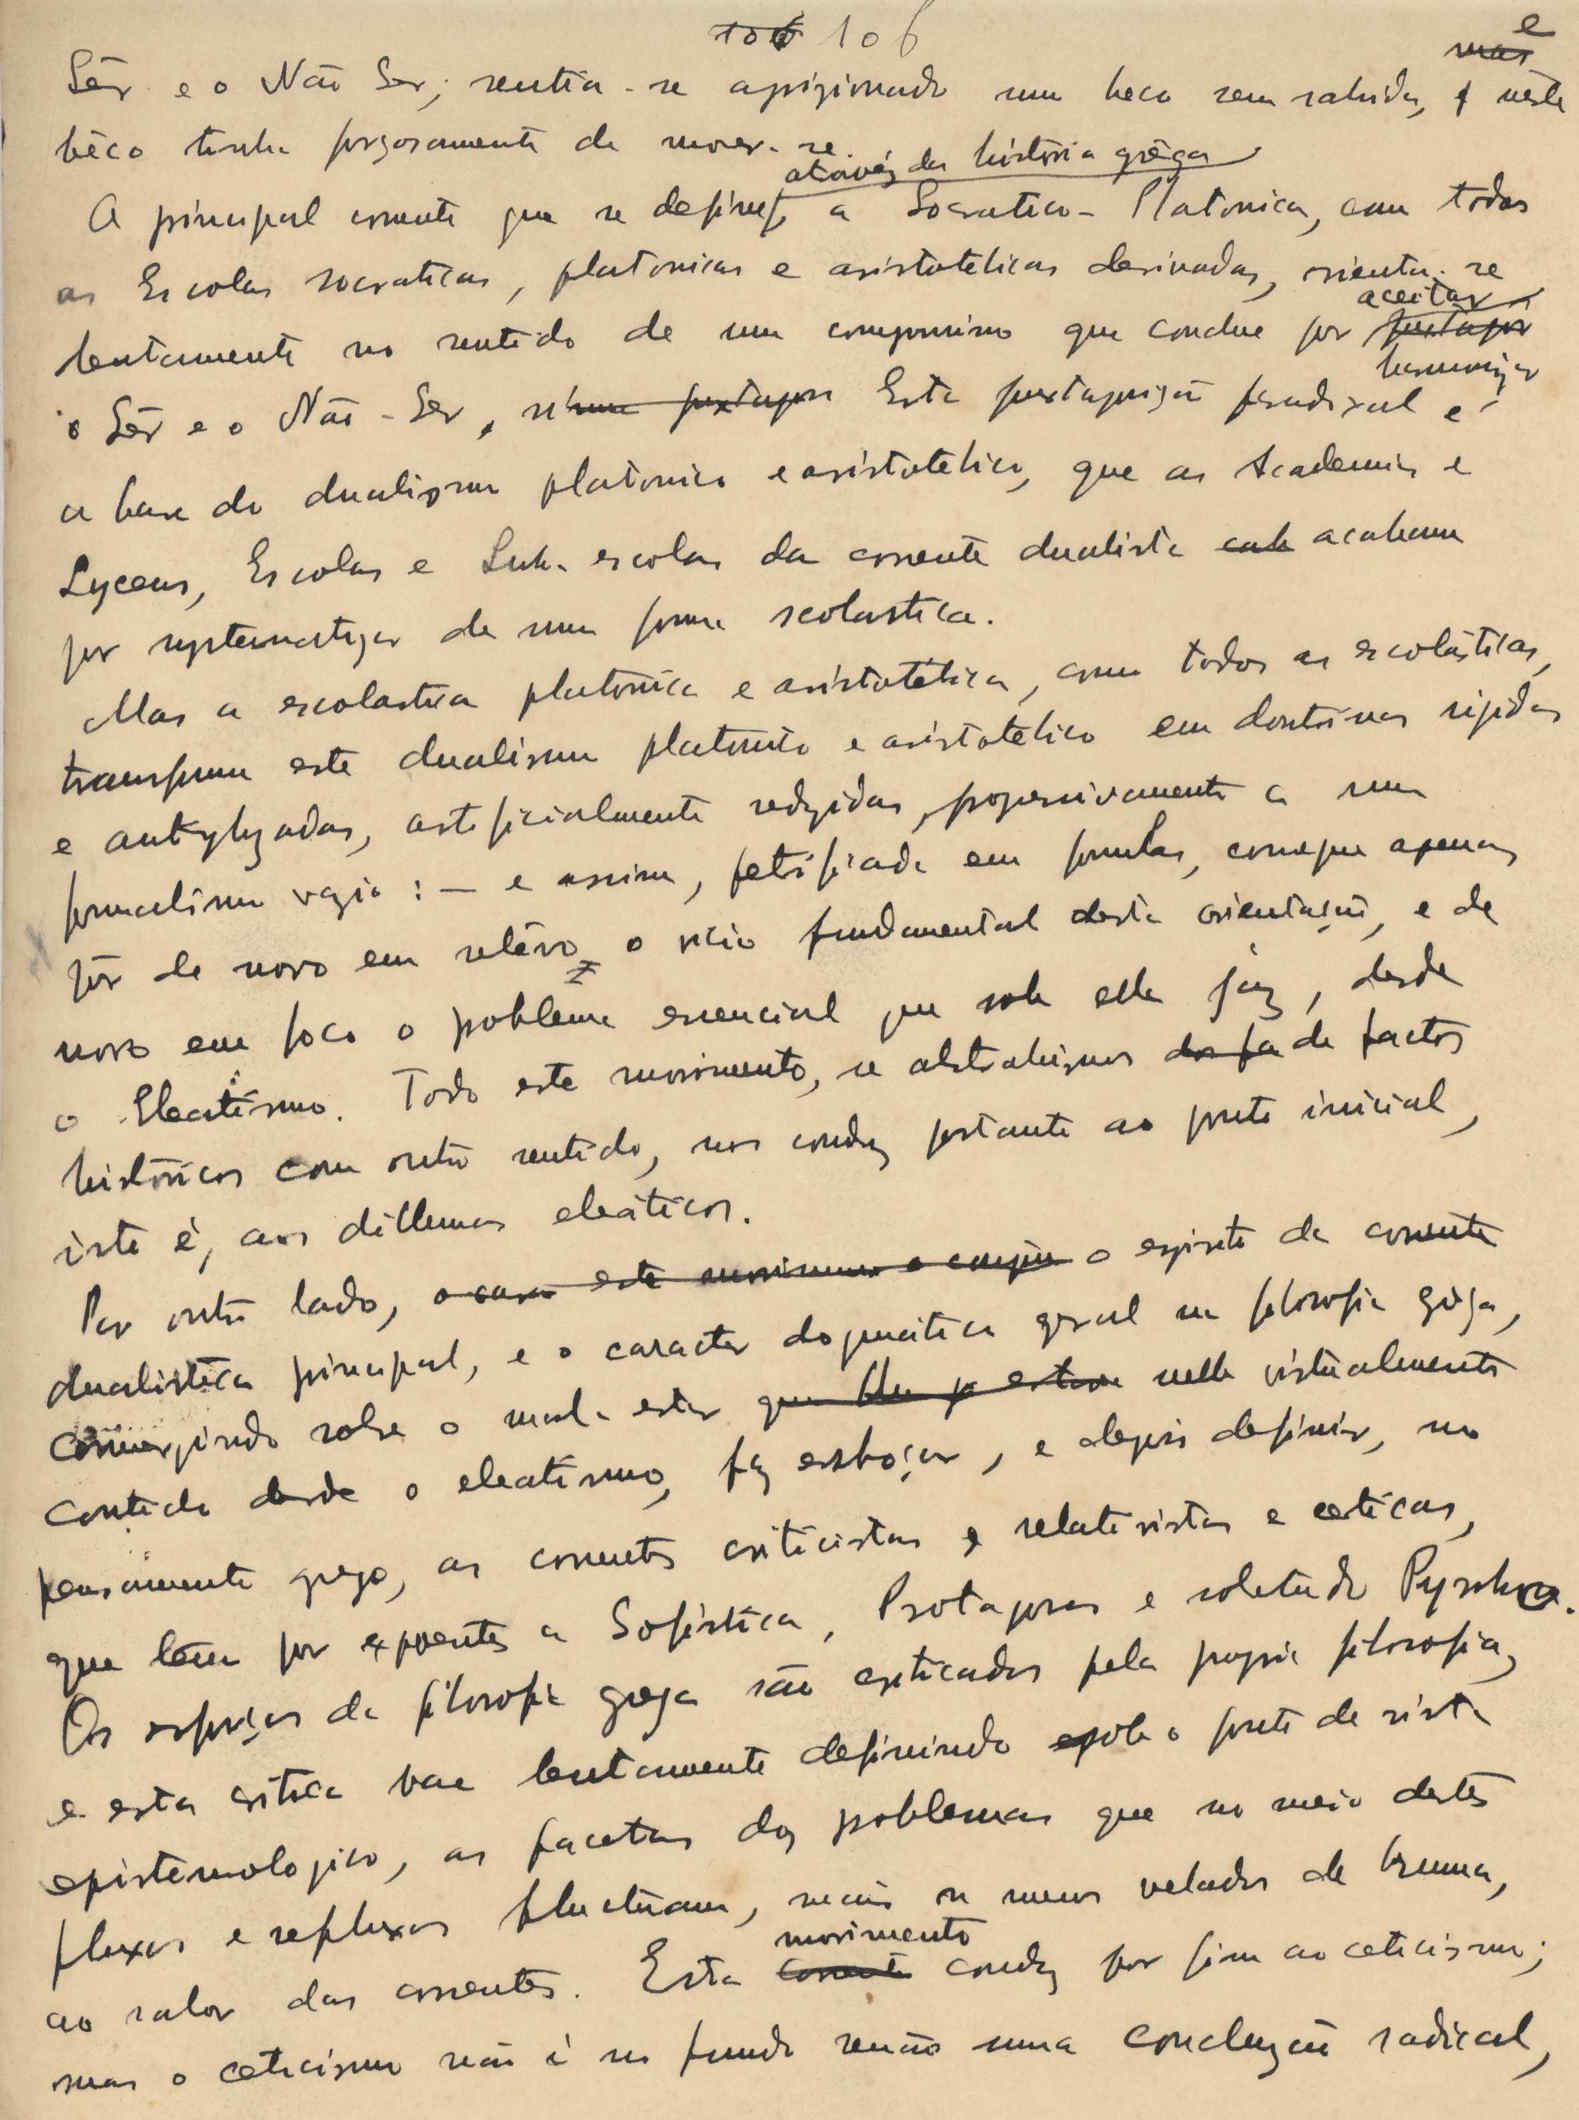 106 106
e
mas
Sêr e o Não Ser; sentia-se aprizionado num beco sem sahida, e neste
bêco tinha forçosamente de mover-se.
atravéz da história grêga
A principal corrente que se define, a Socratico-Platonica, com todas
as Escolas socraticas, platonicas e aristotelicas derivadas, orienta-se
aceitar
lentamente no sentido de um compromisso que conclue por justapôr
harmonizar
o Sêr e o Não-Ser, numa juxtapor Esta juxtaposição paradoxal é
a base do dualismo platonico e aristotelico, que as Academias e
Lyceus, Escolas e Sub-escolas da corrente dualista acabam
por systematizar de uma forma scolastica.
Mas a escolastica platónica e aristotélica, como todas as escolásticas,
transforma este dualismo platonico e aristotélico em doutrinas rigidas
e ankylozadas, artificialmente redigidas, progressivamente a um
formalismo vazio: — e assim, petrificada em formulas, consegue apenas
pôr de novo em relêvo o vicio fundamental desta orientação, e de
novo em foco o problema essencial que sob elle jaz, desde
o Eleatismo. Todo este movimento, se abstrahirmos dos fa de factos
históricos com outro sentido, nos conduz portanto ao ponto inicial,
isto é, aos dillemas eleáticos.
Por outro lado, o caso este movimento o espirito da corrente
dualistica principal, e o caracter dogmatico geral na filosofia grêga,
convergindo sobre o mal-estar que lhe ja estava nelle virtualmente
contido desde o eleatismo, faz esboçar, e depois definir, no
pensamento grego, as correntes criticistas e relativistas e ceticas,
que têem por expoentes a Sofistica, Protagoras e sobretudo Pyrrho.
Os esforços da filosofia grega são criticados pela propria filosofia,
e esta critica vae lentamente definindo sob o ponto de vista
epistemologico, as facetas dos problemas que no meio destes
fluxos e refluxos fluctuam, mais ou menos velados de bruma,
movimento
ao sabor das correntes. Esta corrente conduz por fim ao ceticismo;
mas o ceticismo não é no fundo senão uma concluzão radical,